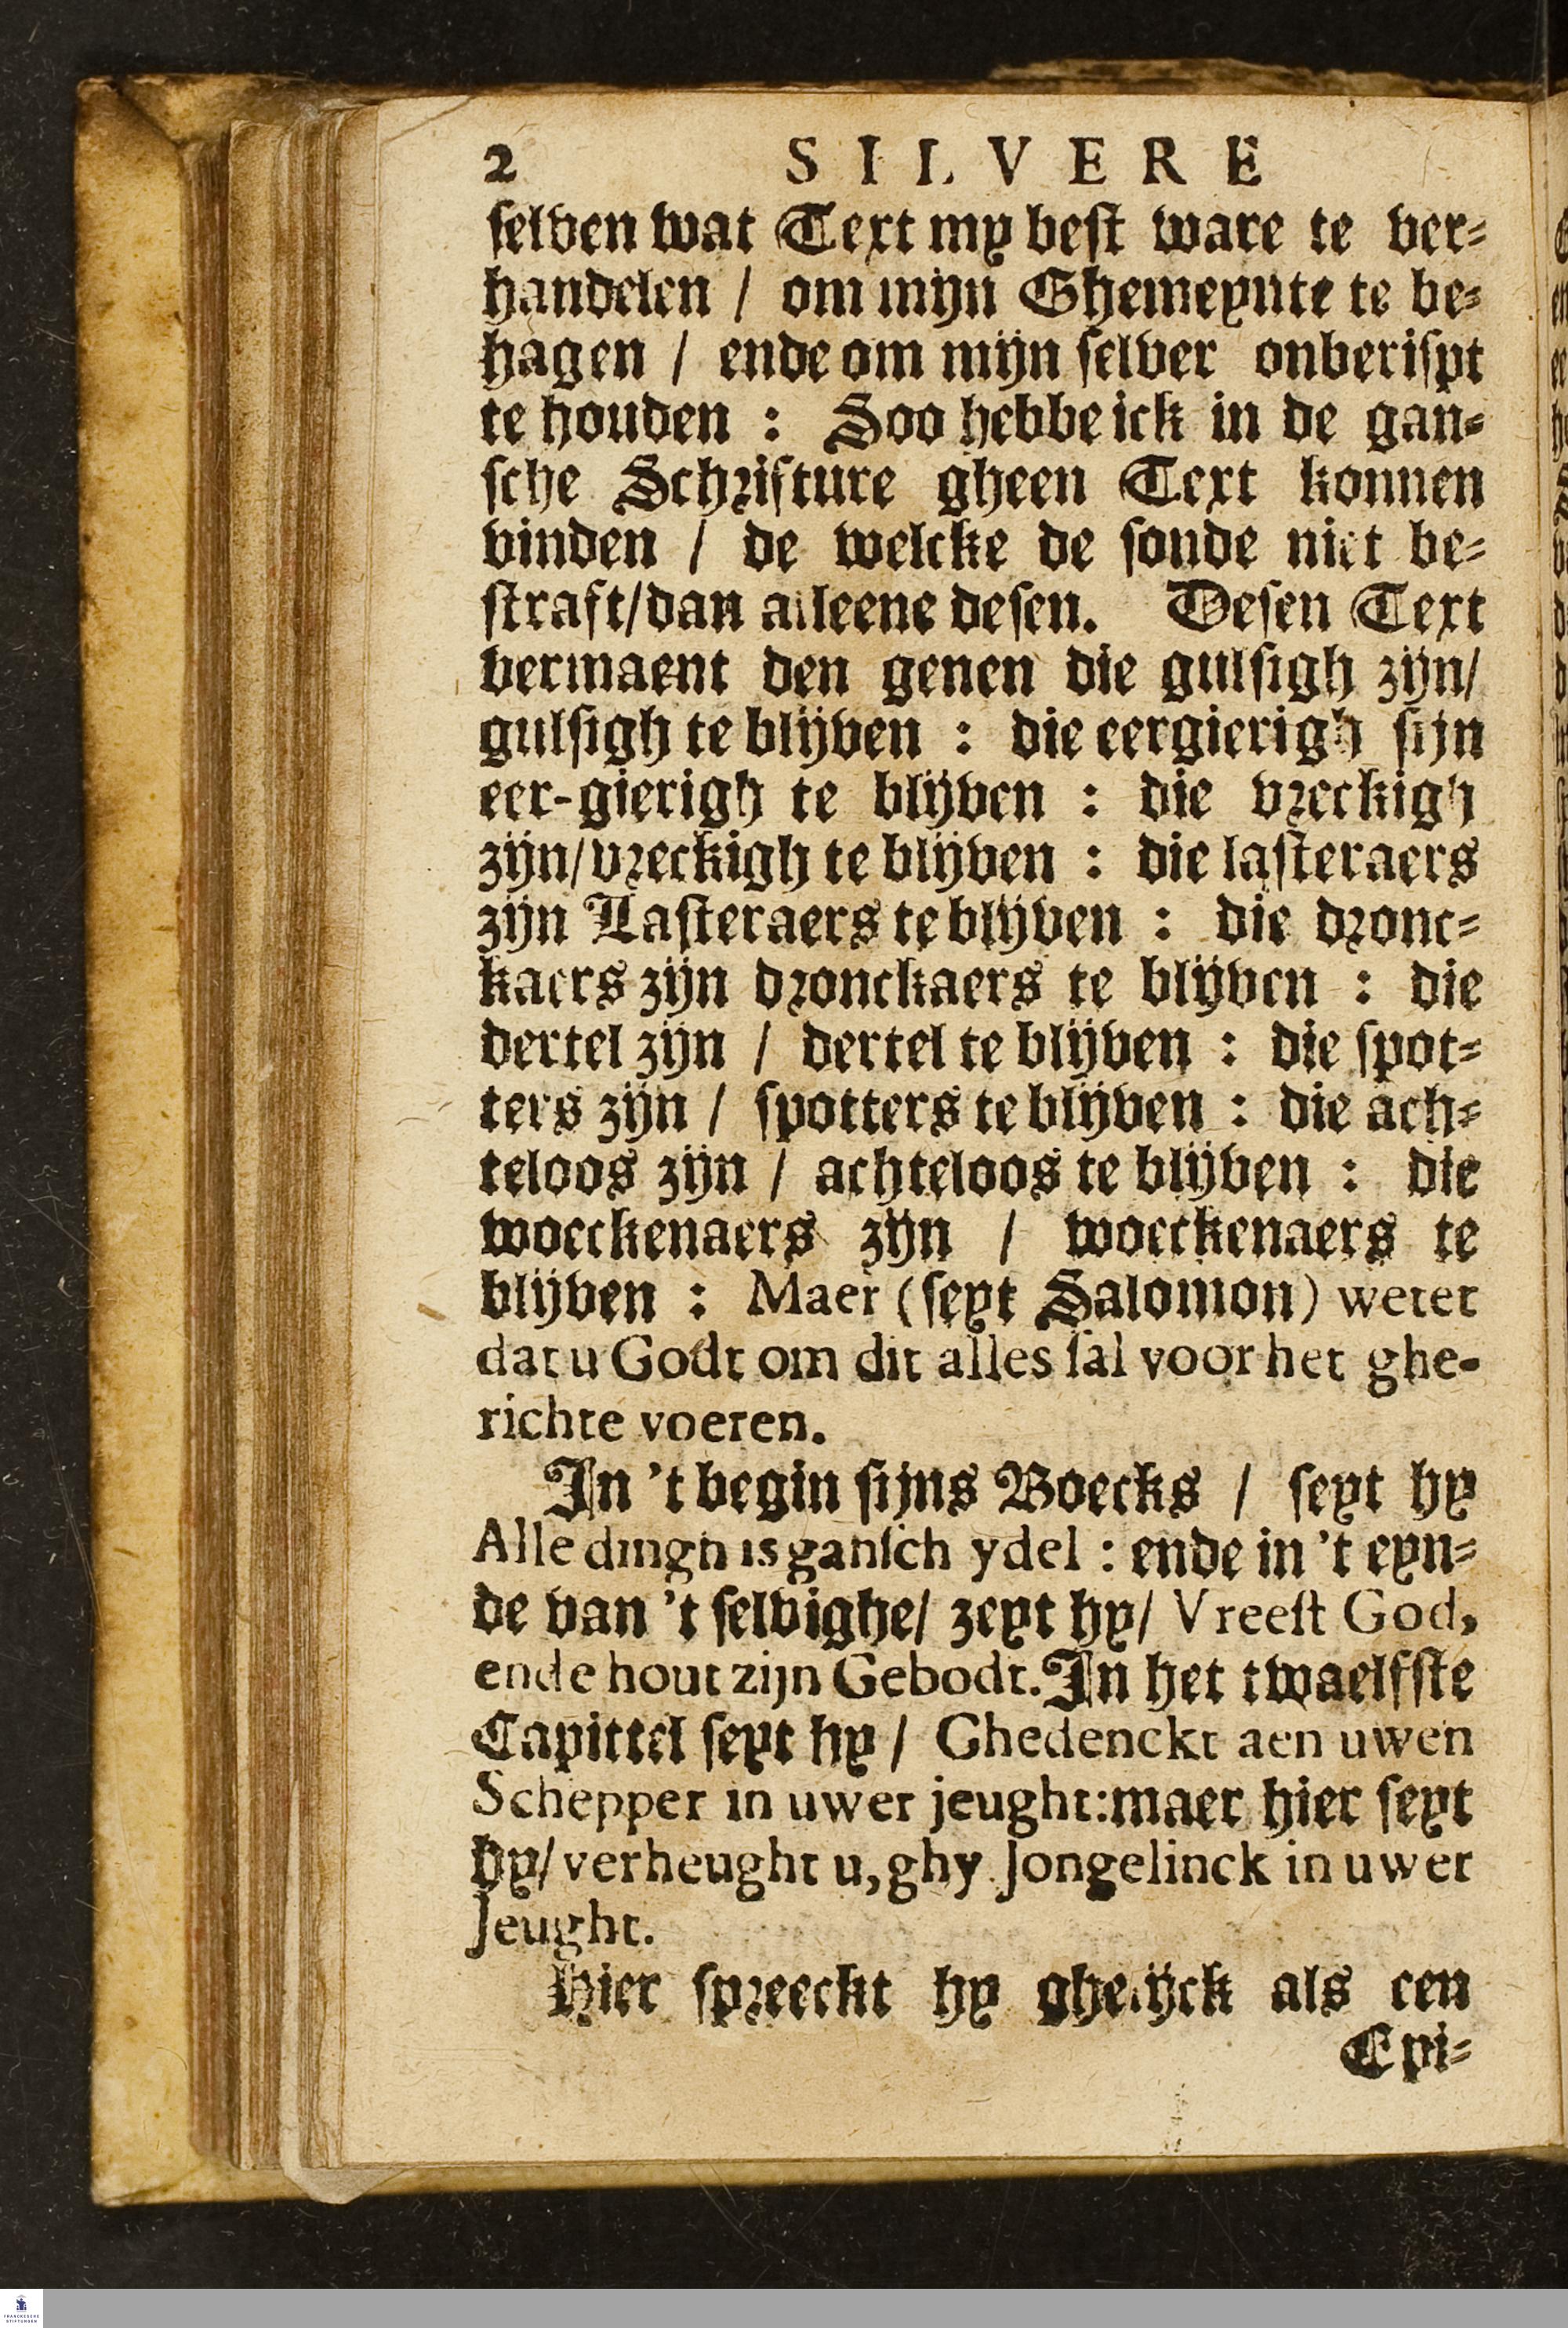 2 SILVERE
ſelven wat Text my beſt ware te ver-
handelen / om mijn Ghemeynte te be-
hagen / ende om mijn ſelver onberiſpt
te houden : Soo hebbe ick in de gan-
ſche Schrifture gheen Text konnen
vinden / de welcke de ſonde niet be-
ſtraft/dan alleene deſen. Deſen Text
vermaent den genen die gulſigh zijn/
gulſigh te blijven : die eergierigh ſijn
eer-gierigh te blijven : die vreckigh
zijn/vreckigh te blijven : die laſteraers
zijn Laſteraers te blijven : die dronc-
kaers zijn dronckaers te blijven : die
dertel zijn / dertel te blijven : die ſpot-
ters zijn / ſpotters te blijven : die ach-
teloos zijn / achteloos te blijven : die
woeckenaers zijn / woeckenaers te
blijven : Maer (ſeyt Salomon) wetet
dat u Godt om dit alles ſal voor het ghe-
richte voeren.
In 't begin ſijns Boecks / ſeyt hy
Alle dingh is ganſch ydel : ende in 't eyn-
de van 't ſelvighe/ zeyt hy/ Vreeſt God,
ende hout zijn Gebodt. In het twaelfſte
Capittel ſeyt hy / Ghedenckt aen uwen
Schepper in uwer jeught: maer hier ſeyt
hy/ verheught u, ghy Jongelinck in uwer
Jeught.
Hier ſpreeckt hy ghelijck als een
Epi-
FRANCKESCHE
STIFTUNGEN